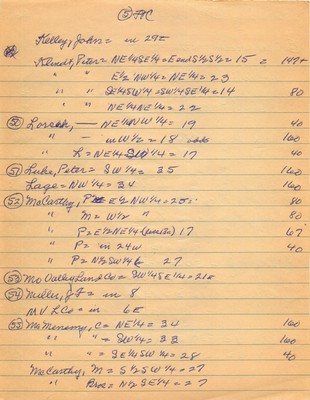 Kelley, John = in 29E
Klundt, Peter = NE¼SE¼=E and S½S½ = 15 = 147
" " E½NW¼=NE¼=23
" " SE¼SW¼=SW¼SE¼=14 80
" " NE¼NE¼=22
50 Losseh, — NE¼NW¼ = 19 40
" — in W½ = 18 160
" L = NE¼SW¼ = 17 40
51 Luke, Peter = SW¼ = 35 160
Lage = NW¼ = 34 160
52 McCarthy, P E½NW¼ = 25 80
" M = W½ " 80
" P = E½NE¼ 17 67
" P = in 24W 40
" P = N½SW¼ 27
53 Mo Valley Land Co = SW¼SE¼=21E
54 Miller, J F = in 8
M V L Co = in 6E
55 McMenomy, C = NE¼ = 34 160
" " = SW¼ = 33 160
" " = SE¼SW¼ = 28 40
McCarthy, M = S½SW¼ = 27
" Bros = N½SE¼ = 27